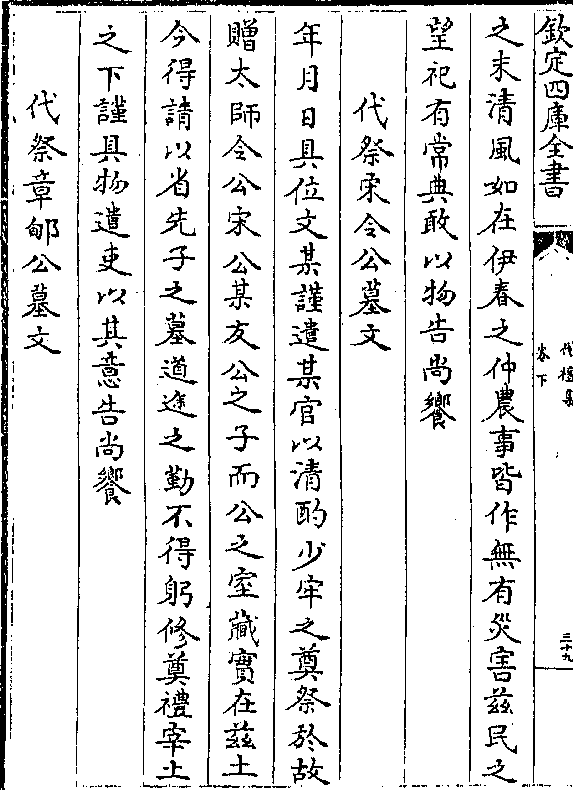 欽定四庫全書
伐檀集
卷下
三十九
之末清風如在伊春之仲農事皆作無有災害茲民之
望祀有常典敢以物告尚饗
代祭宋令公墓文
年月日具位文某謹遣某官以清酌少牢之奠祭於故
贈太師令公宋公某友公之子而公之室藏實在茲土
今得請以省先子之墓道途之勤不得躬修奠禮宰上
之下謹具物遣吏以其意告尚饗
代祭章郇公墓文